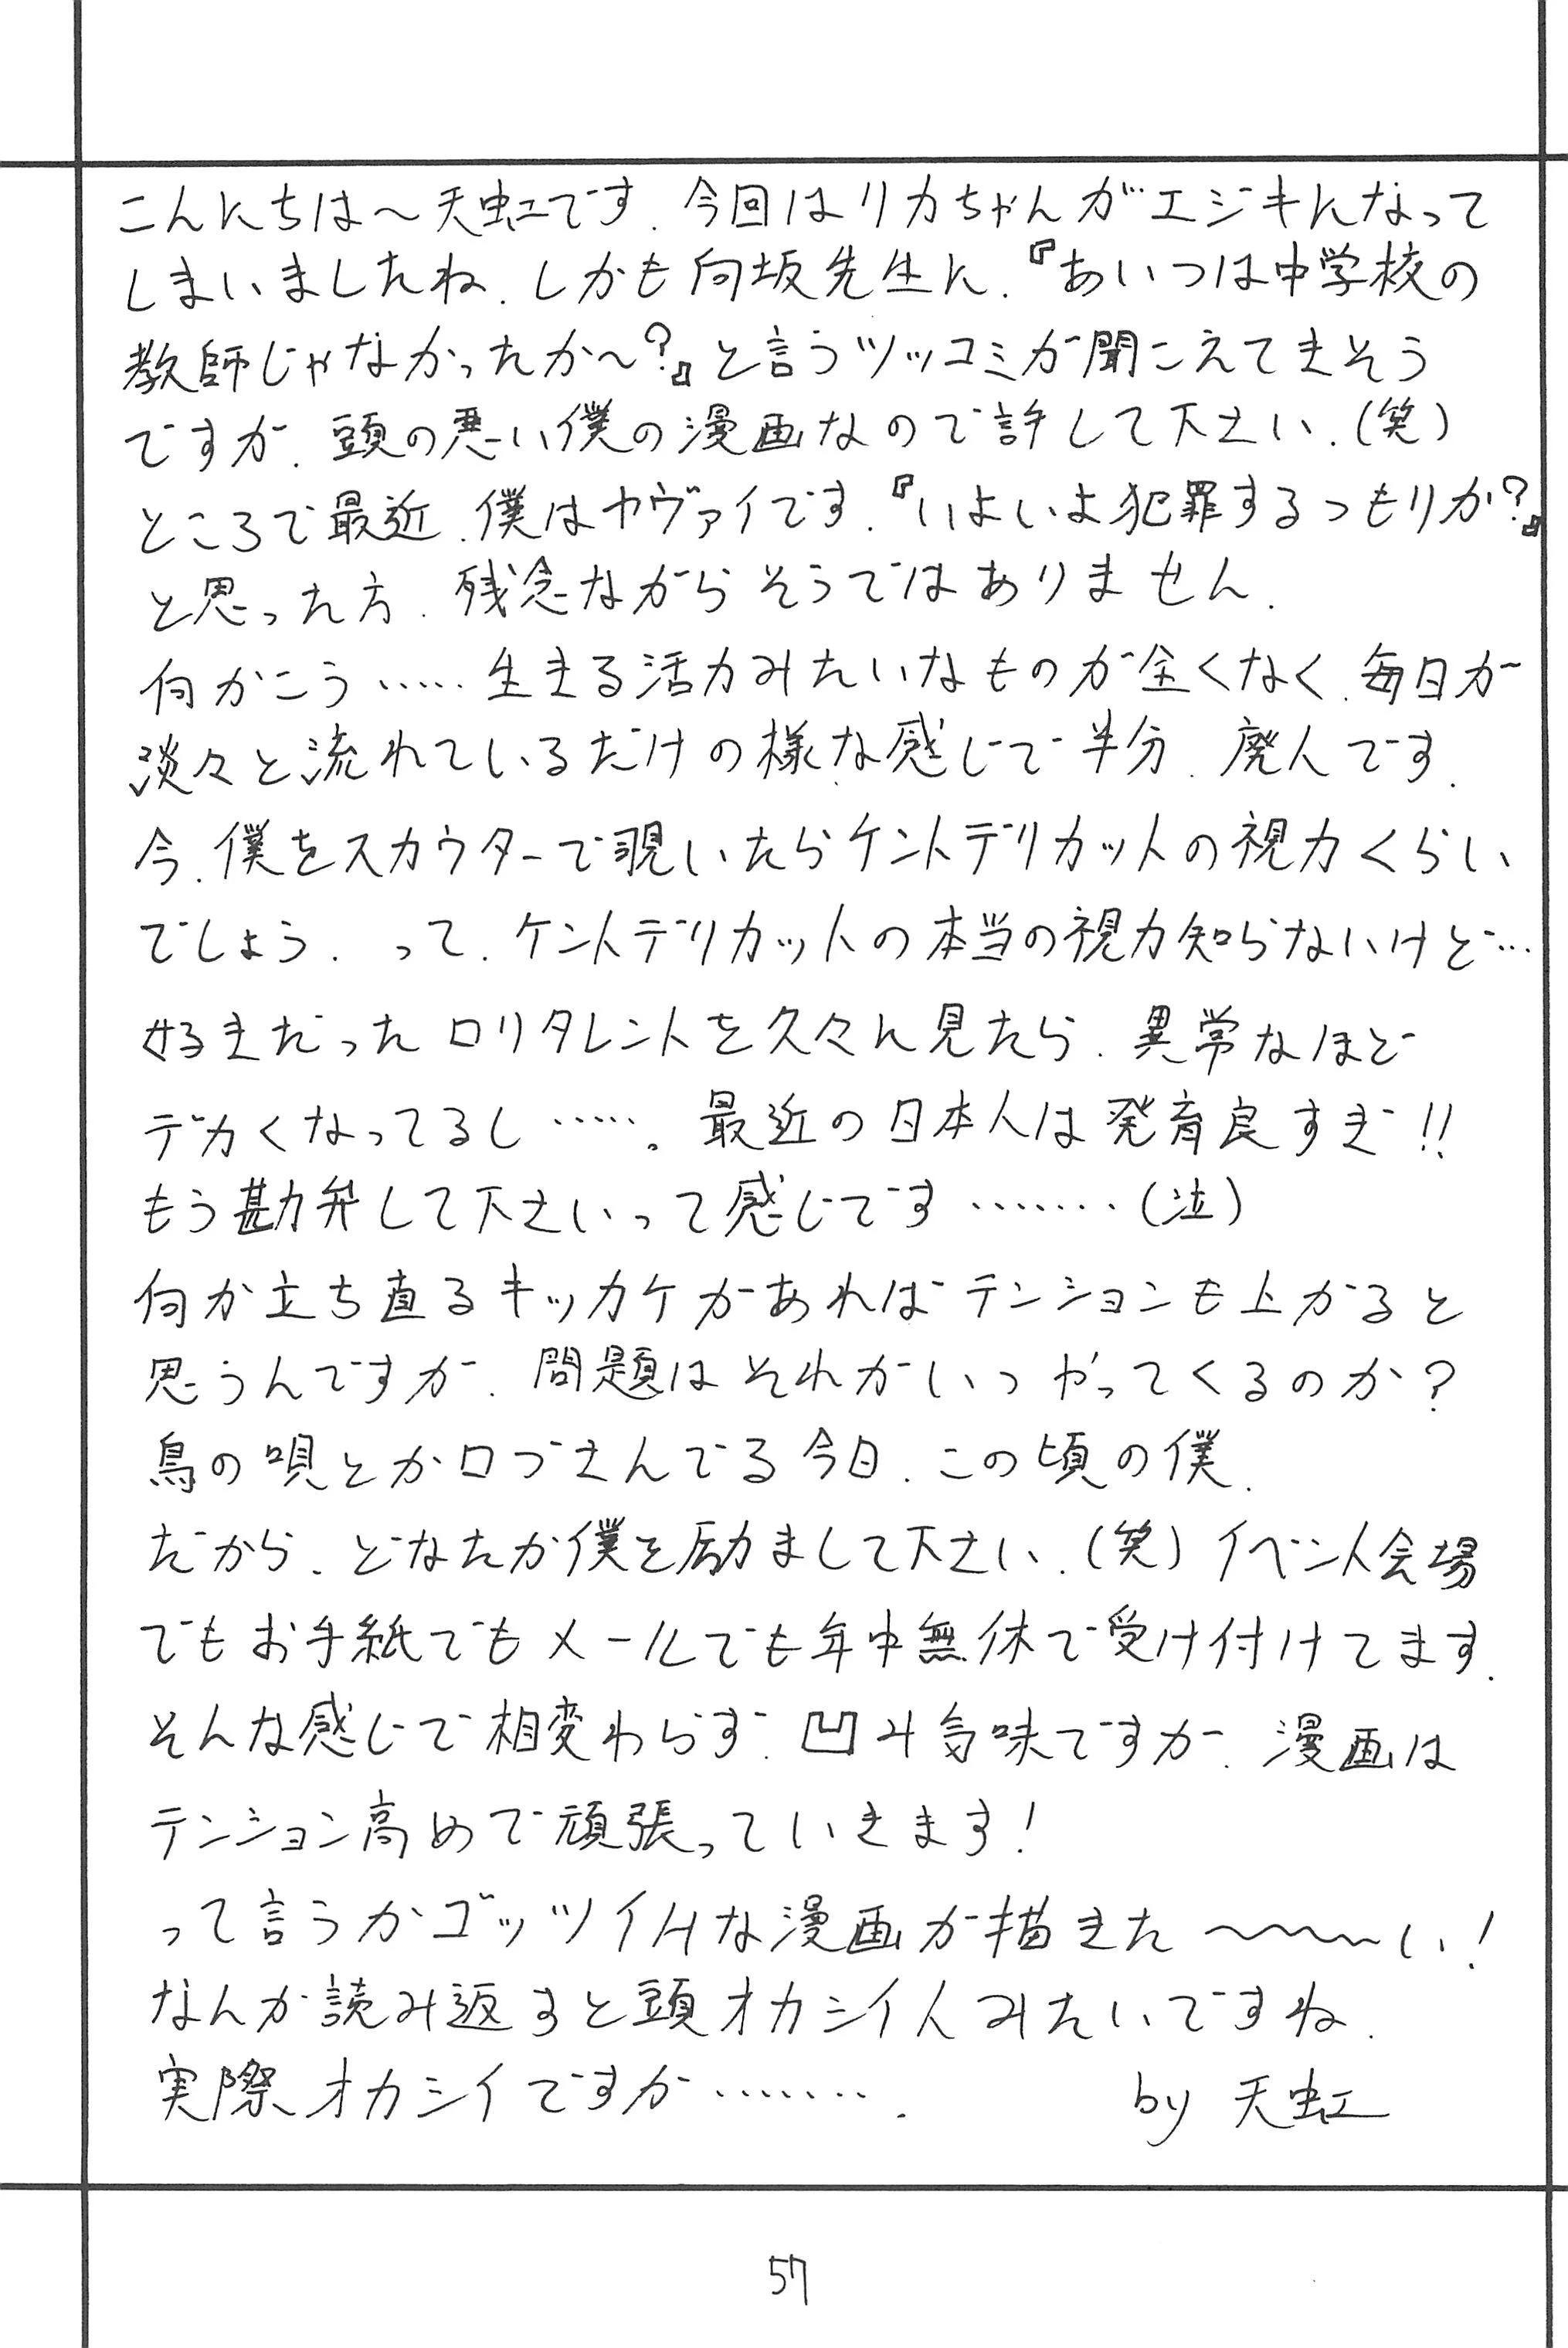 こんにちは～天虹です．今回はリカちゃんがエジキになって
しまいましたね．しかも向坂先生に．『あいつは中学校の
教師じゃなかったか～？』と言うツッコミが聞こえてきそう
ですが．頭の悪い僕の漫画なので許して下さい．（笑）
ところで最近．僕はヤヴァイです．『いよいよ犯罪するつもりか？』
と思った方．残念ながらそうではありません．
何かこう……生きる活力みたいなものが全くなく．毎日が
淡々と流れているだけの様な感じで半分．廃人です．
今．僕をスカウターで覗いたらケントデリカットの視力くらい
でしょう．って．ケントデリカットの本当の視力知らないけど…
好きだったロリタレントを久々に見たら．異常なほど
デカくなってるし……。最近の日本人は発育良すぎ!!
もう勘弁して下さいって感じです………（泣）
何か立ち直るキッカケがあればテンションも上がると
思うんですが．問題はそれがいつやってくるのか？
鳥の唄とか口づさんでる今日．この頃の僕．
だから．どなたか僕を励まして下さい．（笑）イベント会場
でもお手紙でもメールでも年中無休で受け付けてます．
そんな感じで相変わらず．凹み気味ですが．漫画は
テンション高めで頑張っていきます！
って言うかゴッツイHな漫画が描きた～～～～い！
なんか読み返すと頭オカシイ人みたいですね．
実際オカシイですが………．
by 天虹
57